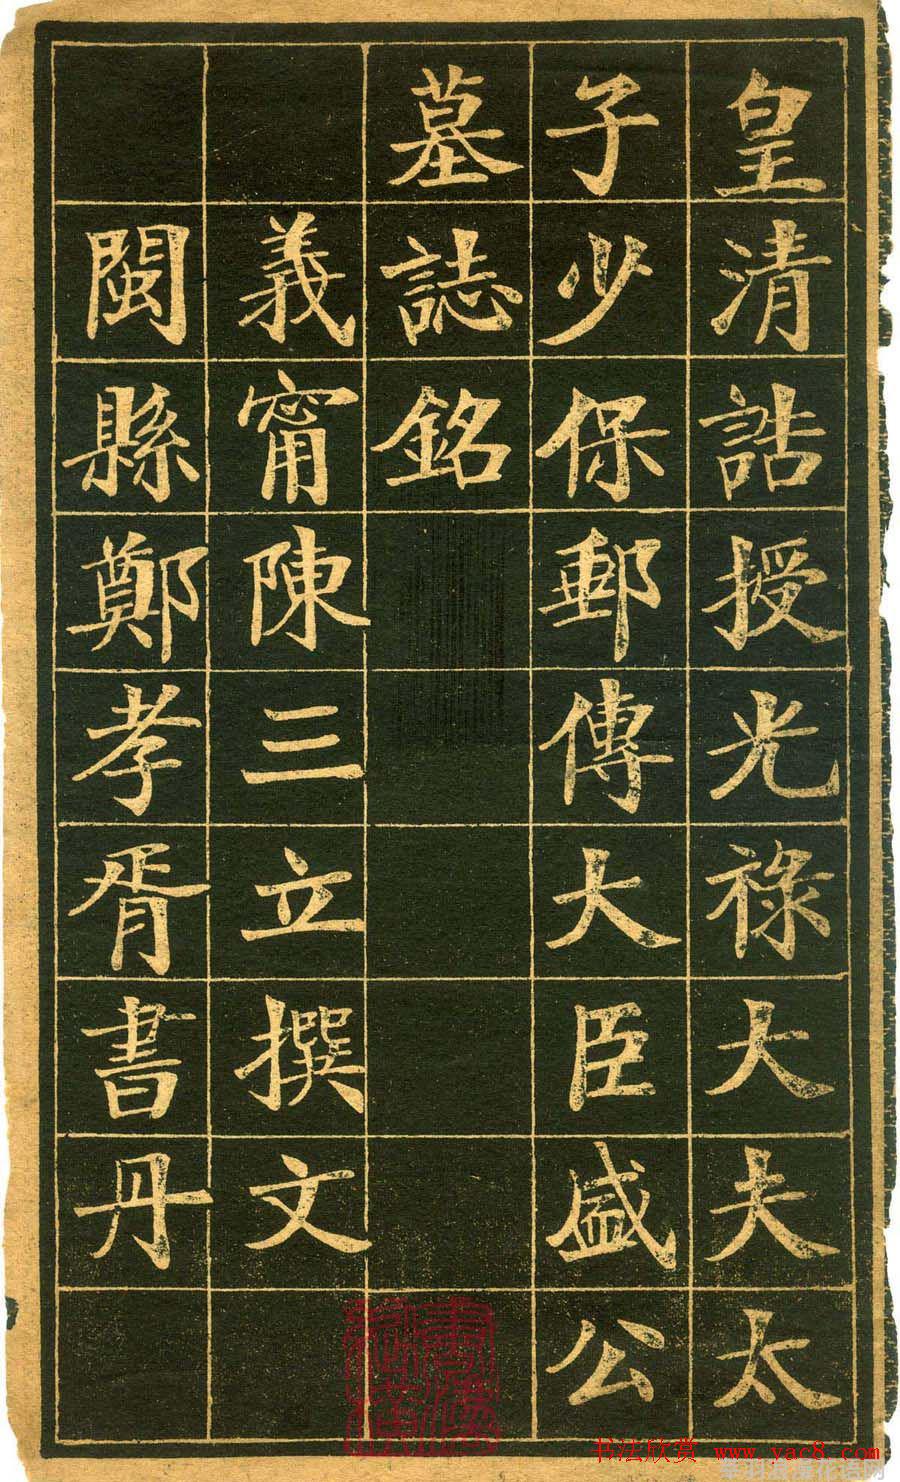 皇清誥授光祿大夫太
子少保郵傳大臣盛公
墓誌銘
義甯陳三立撰文
閩縣鄭孝胥書丹
书法欣赏 www.yac8.com